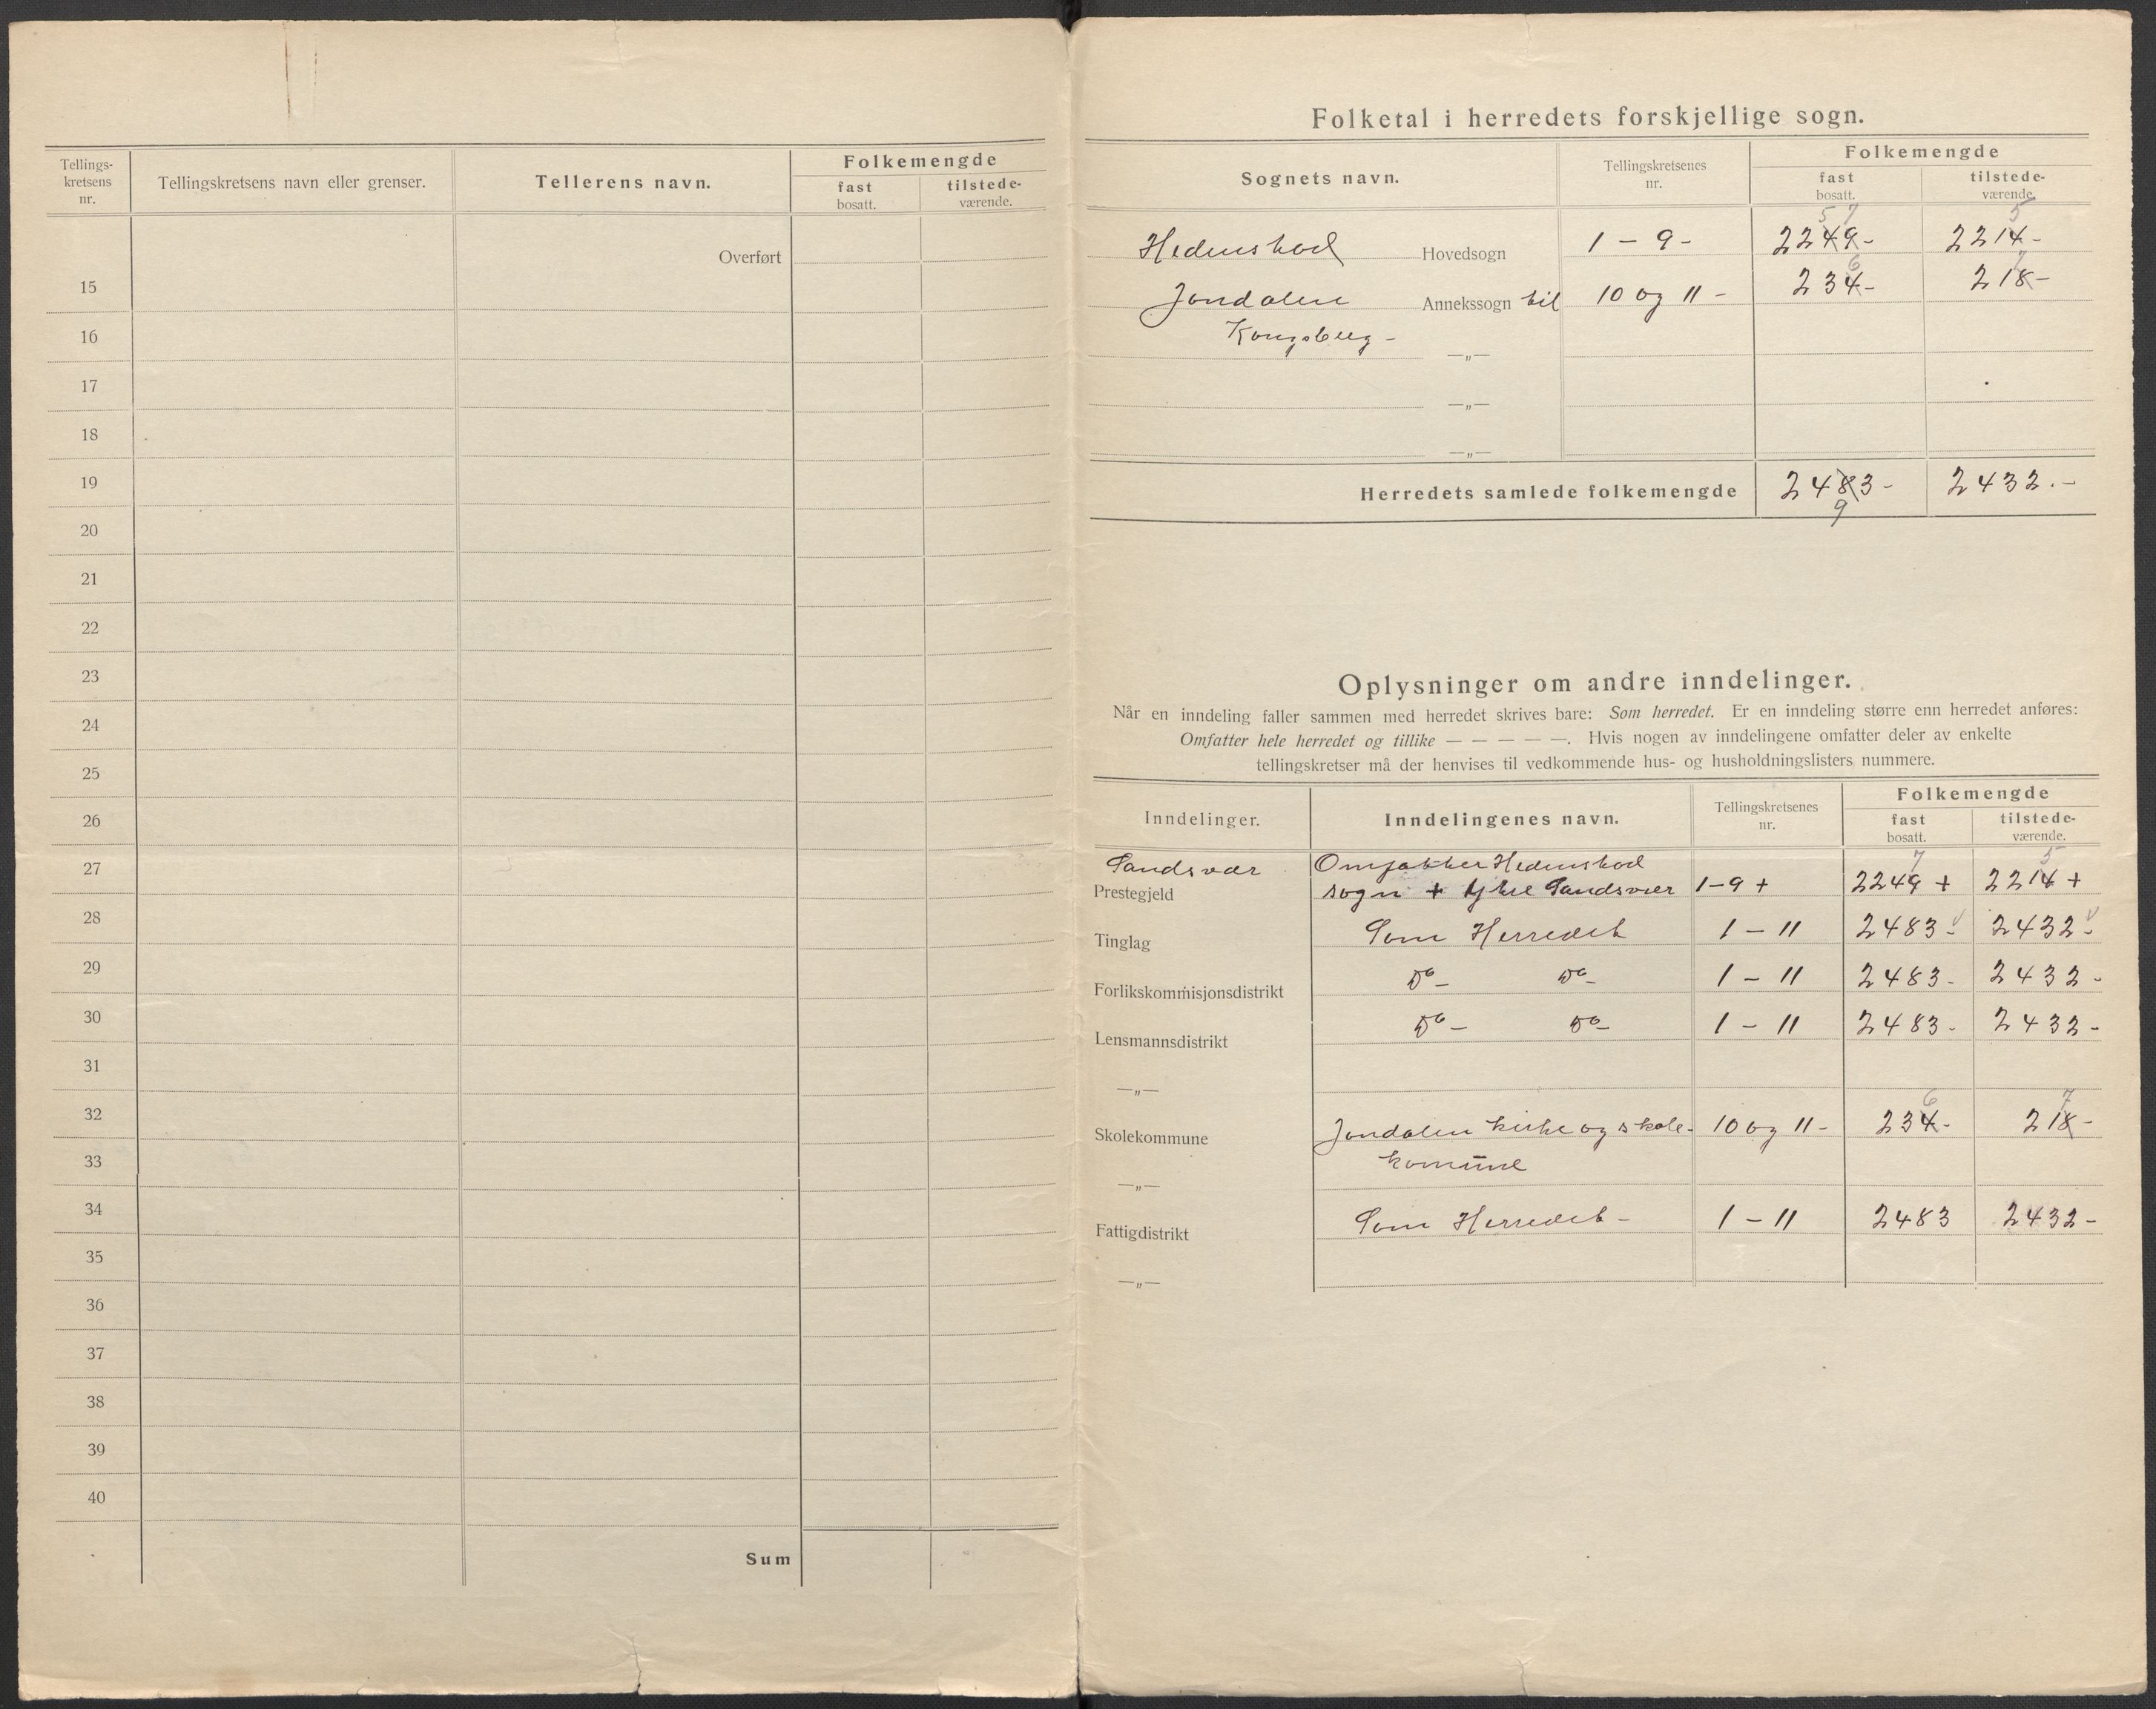 Tellings-
kretsens
nr.
Tellingskretsens navn eller grenser.
Tellerens navn.
Folkemengde
fast
bosatt.
tilstede-
værende.
Overført
15
16
17
18
19
20
21
22
23
24
25
26
27
28
29
30
31
32
33
34
35
36
37
38
39
40
Sum
Folketal i herredets forskjellige sogn.
Sognets navn.
Tellingskretsenes
nr.
Folkemengde
fast
bosatt.
tilstede-
værende.
5 7 5
Hedenstad Hovedsogn 1 - 9 - 2249 - 2214 -
6 7
Jondalen Annekssogn til 10 og 11 - 234 - 218 -
Kongsberg - —„—
—„—
—„—
Herredets samlede folkemengde 2483 - 2432 . -
9
Oplysninger om andre inndelinger.
Når en inndeling faller sammen med herredet skrives bare: Som herredet. Er en inndeling større enn herredet anføres:
Omfatter hele herredet og tillike — — — — —. Hvis nogen av inndelingene omfatter deler av enkelte
tellingskretser må der henvises til vedkommende hus- og husholdningslisters nummere.
Inndelinger.
Inndelingenes navn.
Tellingskretsenes
nr.
Folkemengde
fast
bosatt.
tilstede-
værende.
Sandsvær Omfatter Hedenstad 7 5
Prestegjeld sogn + Ytre Sandsvær 1-9 + 2249 + 2214 +
Tinglag Som Herredet 1 - 11 2483 - 2432 -
Forlikskommisjonsdistrikt Do - Do - 1 - 11 2483 - 2432 -
Lensmannsdistrikt Do - Do - 1 - 11 2483 - 2432 -
—„—
6 7
Skolekommune Jondalen kirke og skole- 10 og 11 - 234 - 218 -
komune
—„—
Fattigdistrikt Som Herredet - 1 - 11 2483 2432 -
—„—